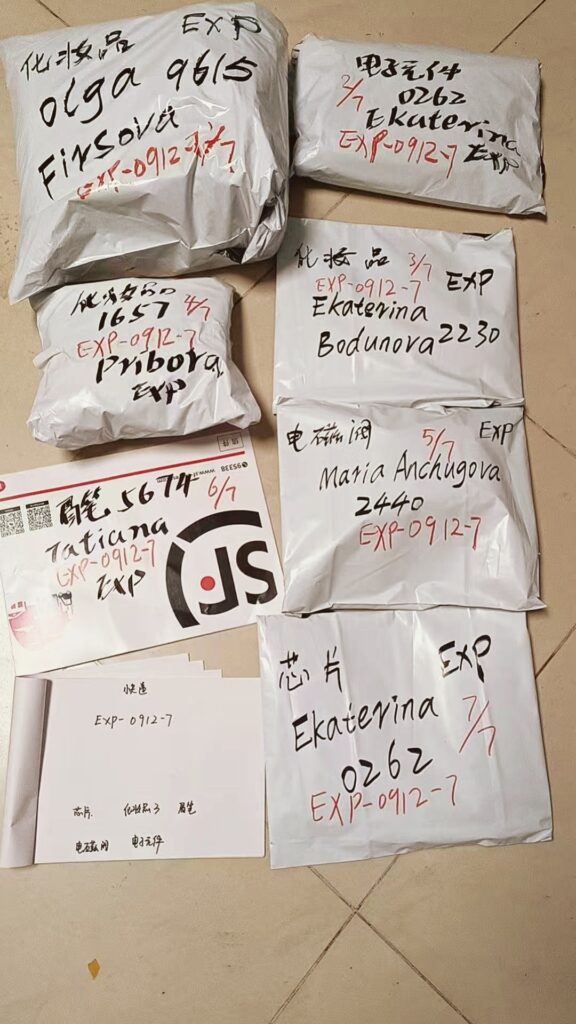 化妆品 EXP
Olga 9615
Firsova
EXP-0912-7 1/7
电子元件
2/7 0262
Ekaterina
EXP-0912-7 EXP
化妆品 3/7 EXP
EXP-0912-7
Ekaterina
Bodunova 2230
化妆品
1657 4/7
EXP-0912-7
Pribora
EXP
电磁阀 5/7 EXP
Maria Anchugova
2440
EXP-0912-7
95338 www.sf
眉笔 5674 6/7
Tatiana
EXP-0912-7
EXP
SF
芯片 EXP
Ekaterina 7/7
0262
EXP-0912-7
快递
EXP-0912-7
芯片 化妆品3 眉笔
电磁阀 电子元件